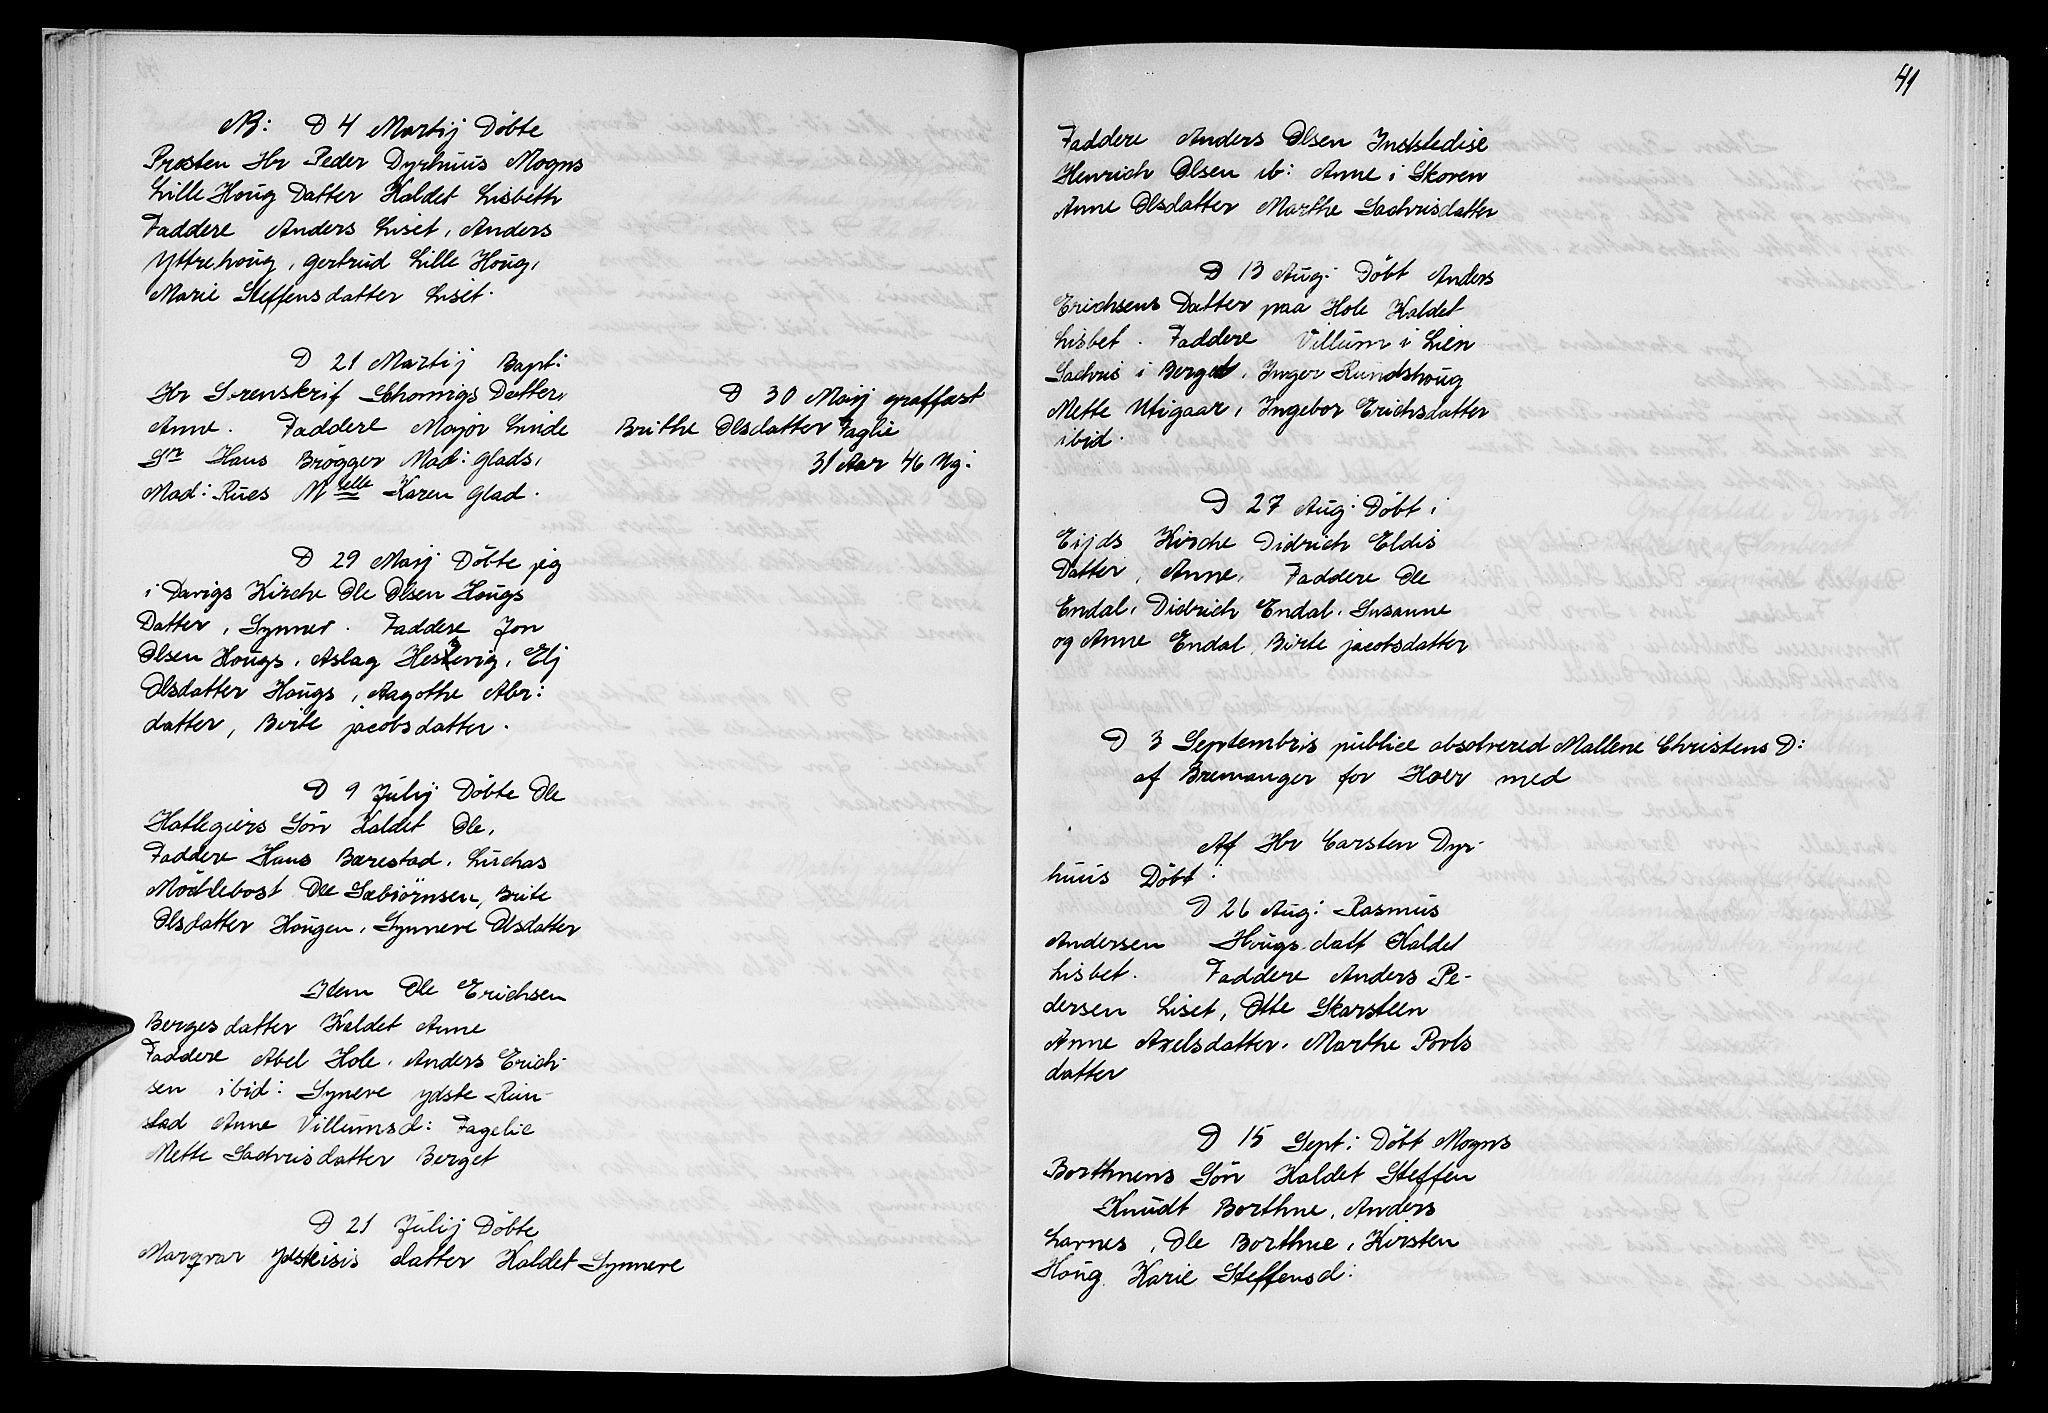 NB: D 4 Martij Döbte
Prosten Hr Peder Dyrhuus Mogns
Lille Houg Datter Kaldet Lisbeth
Faddere Anders Liset, Anders
Yttrehoug, Gertrud Lille Houg,
Marie Steffensdatter Liset.
D 21 Martij Bapt:
Hr Sorenskrif Schonnigs Datter,
Anne. Faddere Major Linde
Sr Hans Brögger Mad: Glads,
Mad: Rues Mselle Karen Glad.
D 29 Maij Döbte jeg
i Davigs Kirche Ole Olsen Hougs
Datter, Synner. Faddere Jon
Olsen Hougs, Aslag, Elj
Olsdatter Hougs, Aagothe Abr:
datter, Birte jacobsdatter.
D 9 Julij Döbte Ole
Hatlegiers Sön Kaldet Ole,
Faddere Hans Bærestad, Luchas
Möcklebost Ole Sæbiörnsen, Brite
Olsdatter Hougen, Synneve Olsdatter
Idem Ole Erichsen
Berges datter Kaldet Anne
Faddere Abel Hole, Anders Erich-
sen ibid: Synneve ydste Run-
stad Anne Villumsd: Fagelie
Mette Sachrisdatter Berget
D 21 Julij Döbte
Marqvar ydsteisis datter Kaldet Synneve
D 30 Maij graffæst
Brithe Olsdatter Faglie
31 Aar 46 Ug:
41
Faddere Anders Olsen Indstedise
Henrich Olsen ib: Anne i Skoren
Anne Olsdatter Marthe Sachrisdatter
D 13 Aug: Döbt Anders
Erichsens Datter paa Hole Kaldet
Lisbet. Faddere Villum i Lien
Sachris i Berget, Inger Rundshoug
Mette Utigaar, Ingebor Erichsdatter
ibid.
D 27 Aug: Döbt i
Eijds Kirche Didrich Eldis
Datter, Anne, Faddere Ole
Endal, Didrich Endal, Susanne
og Anne Endal, Birte jacobsdatter
D 3 Septembris publice absolvered Mallene Christens D:
af Bremanger for Hoer med
Af Hr Carsten Dyr-
huus Döbt:
D 26 Aug: Rasmus
Andersen Hougs datt Kaldet
Lisbet. Faddere Anders Pe-
dersen Liset, Otte Skarsteen
Anne Axelsdatter, Marthe Povls
datter
D 15 Sept: Döbt Mogns
Borthnens Sön Kaldet Steffen
Knudt Borthne, Anders
Larnes, Ole Borthne, Kirsten
Houg, Karie Steffensd: